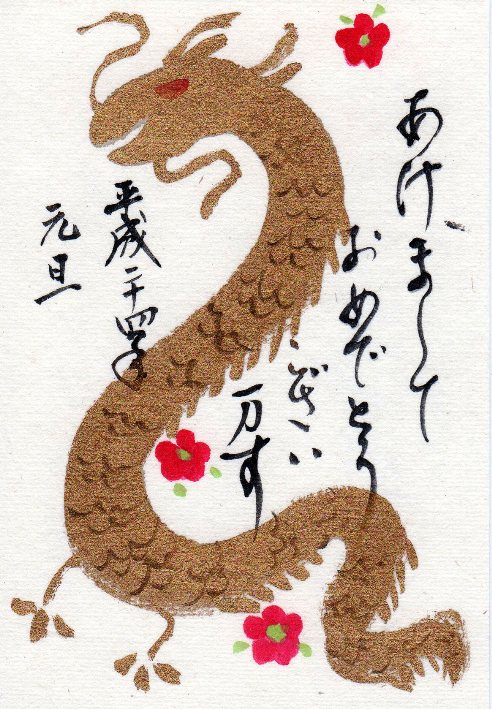 あけまして
おめでとう
ござい
万す
平成二十四年
元旦